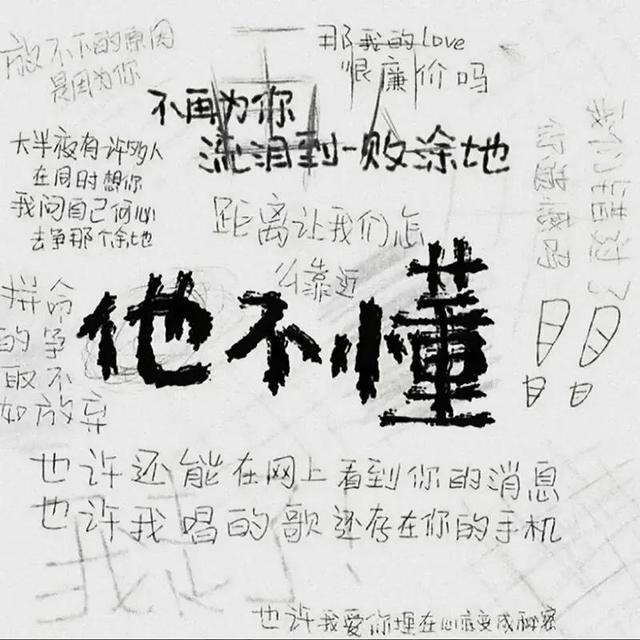 放不下的原因
是因为你
那我的love
恨廉价吗
不再为你
流泪到一败涂地
大半夜有许多人
在同时想你
我问自己何必
去争那个余地
距离让我们怎
么靠近
我们错过了
你遗憾吗
!!
他不懂
拼命
的争
取不
如放弃
也许还能在网上看到你的消息
也许我唱的歌还存在你的手机
我不
也许我爱你埋在心底变成秘密